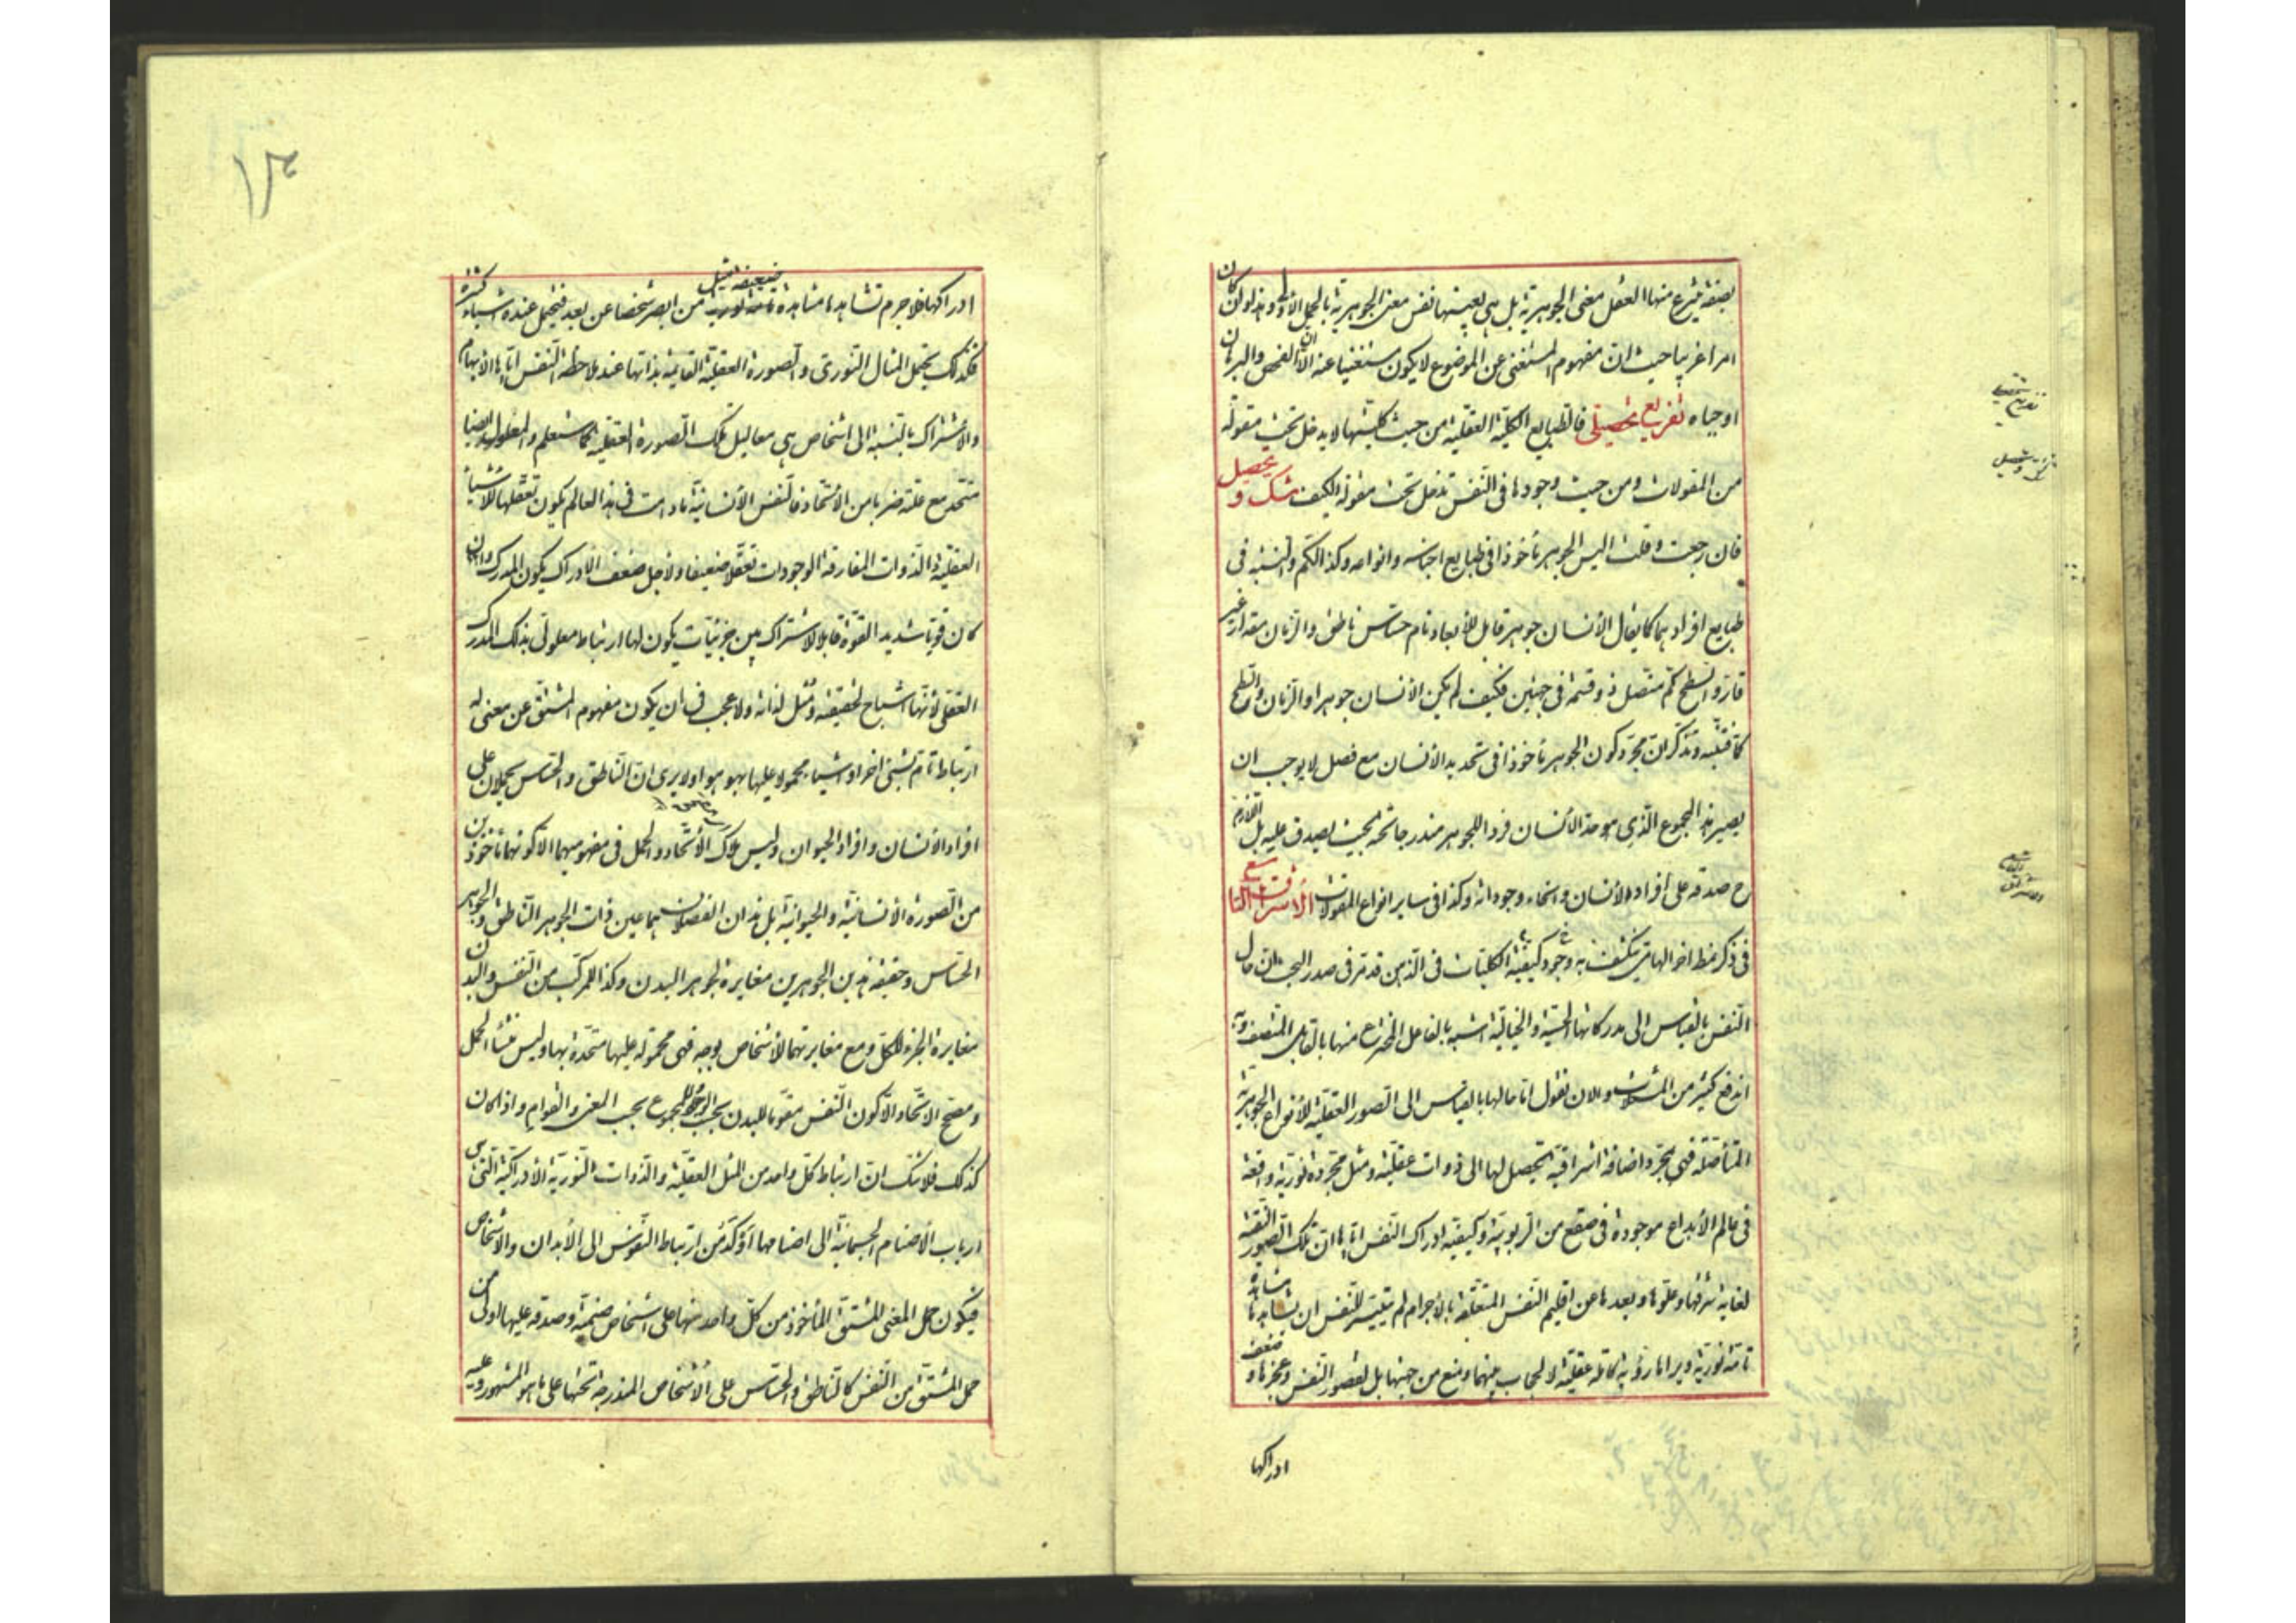 بصفة ينتزع منها العقل معنى الجوهرية بل هى بعينها نفس معنى الجوهرية بالحمل الأولى وهذا لو كان
امرا غريبا حيث ان مفهوم المستغنى عن الموضوع لا يكون مستغنيا عنه الا ان الفحص والبرهان
اوجباه تفريع تحصيلى فالطبايع الكلية العقلية من حيث كليتها لا يدخل تحت مقولة
من المقولات ومن حيث وجودها فى النفس تدخل تحت مقولة الكيف شك و تحصيل
فان رجعت وقلت اليس الجوهر مأخوذا فى طبايع اجناسه وانواعه وكذا الكم والنسبة فى
طبايع افرادهما كما يقال الأنسان جوهر قابل للأبعاد نام حساس ناطق والزمان مقدار غير
قار والسطح كم متصل ذو قسمة فى جهتين فكيف لم يكن الأنسان جوهرا والزمان والسطح
كما فتنبه وتذكر ان مجرد كون الجوهر مأخوذا فى تحديد الأنسان مع فصل لا يوجب ان
يصير هذا المجموع الذى هو حد الأنسان فردا للجوهر مندرجا تحته بحيث يصدق عليه بل اللازم
ح صدقه على افراد الأنسان وانحاء وجوداته وكذا فى ساير انواع المقولات الأشراق التاسع
فى ذكر نمط اخر الهامى ينكشف به وجود كيفية الكليات فى الذهن قد مر فى صدر البحث ان حال
النفس بالقياس الى مدركاتها الحسية والخيالية اشبه بالفاعل المخترع منها بالقابل المتصف وبه
اندفع كثير من المشكلات والان نقول اما حالها بالقياس الى الصور العقلية للأنواع الجوهرية
المتأصلة فهى بمجرد اضافة اشراقية تحصل لها الى ذوات عقلية ومثل مجردة نورية واقعة
فى عالم الأبداع موجودة فى صقع من الربوبية وكيفية ادراك النفس اياها ان تلك الصور النقية
لغاية شرفها وعلوها وبعدها عن اقليم النفس المتعلقة بالأجرام لم يتيسر للنفس ان يشاهدها مشاهدة
تامة نورية ويراها رؤية كاملة عقلية لا لحجاب بينهما ومنع من جهتها بل لقصور النفس وعجزها وضعف
ادراكها
تفريع تحصيلى
شك وتحصيل
الاشراق التاسع
١٣
ادراكها فلا جرم تشاهدها مشاهدة ضعيفة مثل من ابصر شخصا عن بعد فيحتمل عنده اشياء كثيرة
فكذلك يحتمل المثال النورى والصورة العقلية القائمة بذاتها عند ملاحظة النفس اياها الأبهام
والأشتراك بالنسبة الى اشخاص هى معاليل تلك الصورة العقلية كما ستعلم والمعلول ايضا
متحد مع علته ضربا من الأتحاد فالنفس الأنسانية مادامت فى هذا العالم يكون تعقلها للأشياء
العقلية والذوات المفارقة الوجودات تعقلا ضعيفا ولأجل ضعف الأدراك يكون المدرك وان
كان قويا شديد القوة قابلا للأشتراك بين جزئيات يكون لها ارتباط معلولى بذلك المدرك
العقلى لأنها اشباح لحقيقته ومثل لذاته ولا عجب فى ان يكون مفهوم المشتق عن معنى له
ارتباط تام بشىء اخر او اشياء محمولا عليها بهو هو اولا يرى ان الناطق والحساس يحملان على
افراد الأنسان وافراد الحيوان وليس ملاك الأتحاد والحمل فى مفهوميهما الا كونهما مأخوذين
من الصورة الأنسانية والحيوانية بل هذان الفصلان هما عين ذات الجوهر الناطق والجوهر
الحساس وحقيقة هذين الجوهرين مغايرة لجوهر البدن وكذا للمركب من النفس والبدن
مغايرة الجزء للكل ومع مغايرتهما للأشخاص بوجه فهى محمولة عليها متحدة بها وليس منشأ الحمل
ومصحح الاتحاد الا كون النفس مقوما للبدن بحسب الوجود للمجموع بحسب المعنى والقوام واذا كان
كذلك فلا شك ان ارتباط كل واحد من المثل العقلية والذوات النورية الأدراكية التى هى
ارباب الأصنام الجسمانية الى اصنامها أوكد من ارتباط النفوس الى الأبدان والأشخاص
فيكون حمل المعنى المشتق المأخوذ من كل واحد منها على اشخاص صنمية وصدقه عليها اولى من
حمل المشتق من النفس كالناطق والحساس على الأشخاص المندرجة تحتها على ما هو المشهور وعليه